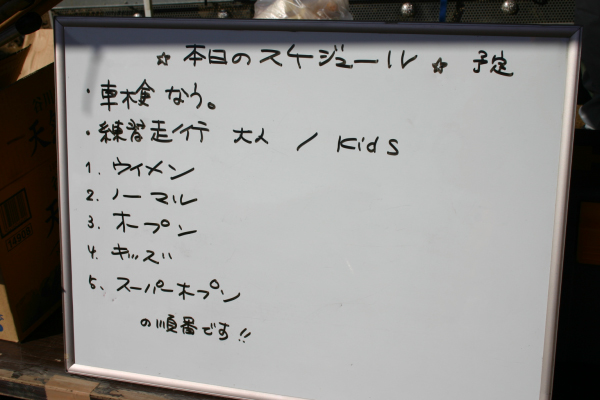 ☆ 本日のスケジュール ☆ 予定
・車検 なう。
・練習走行 大人 / Kids
1. ウイメン
2. ノーマル
3. オープン
4. キッズ
5. スーパーオープン
の順番です!!